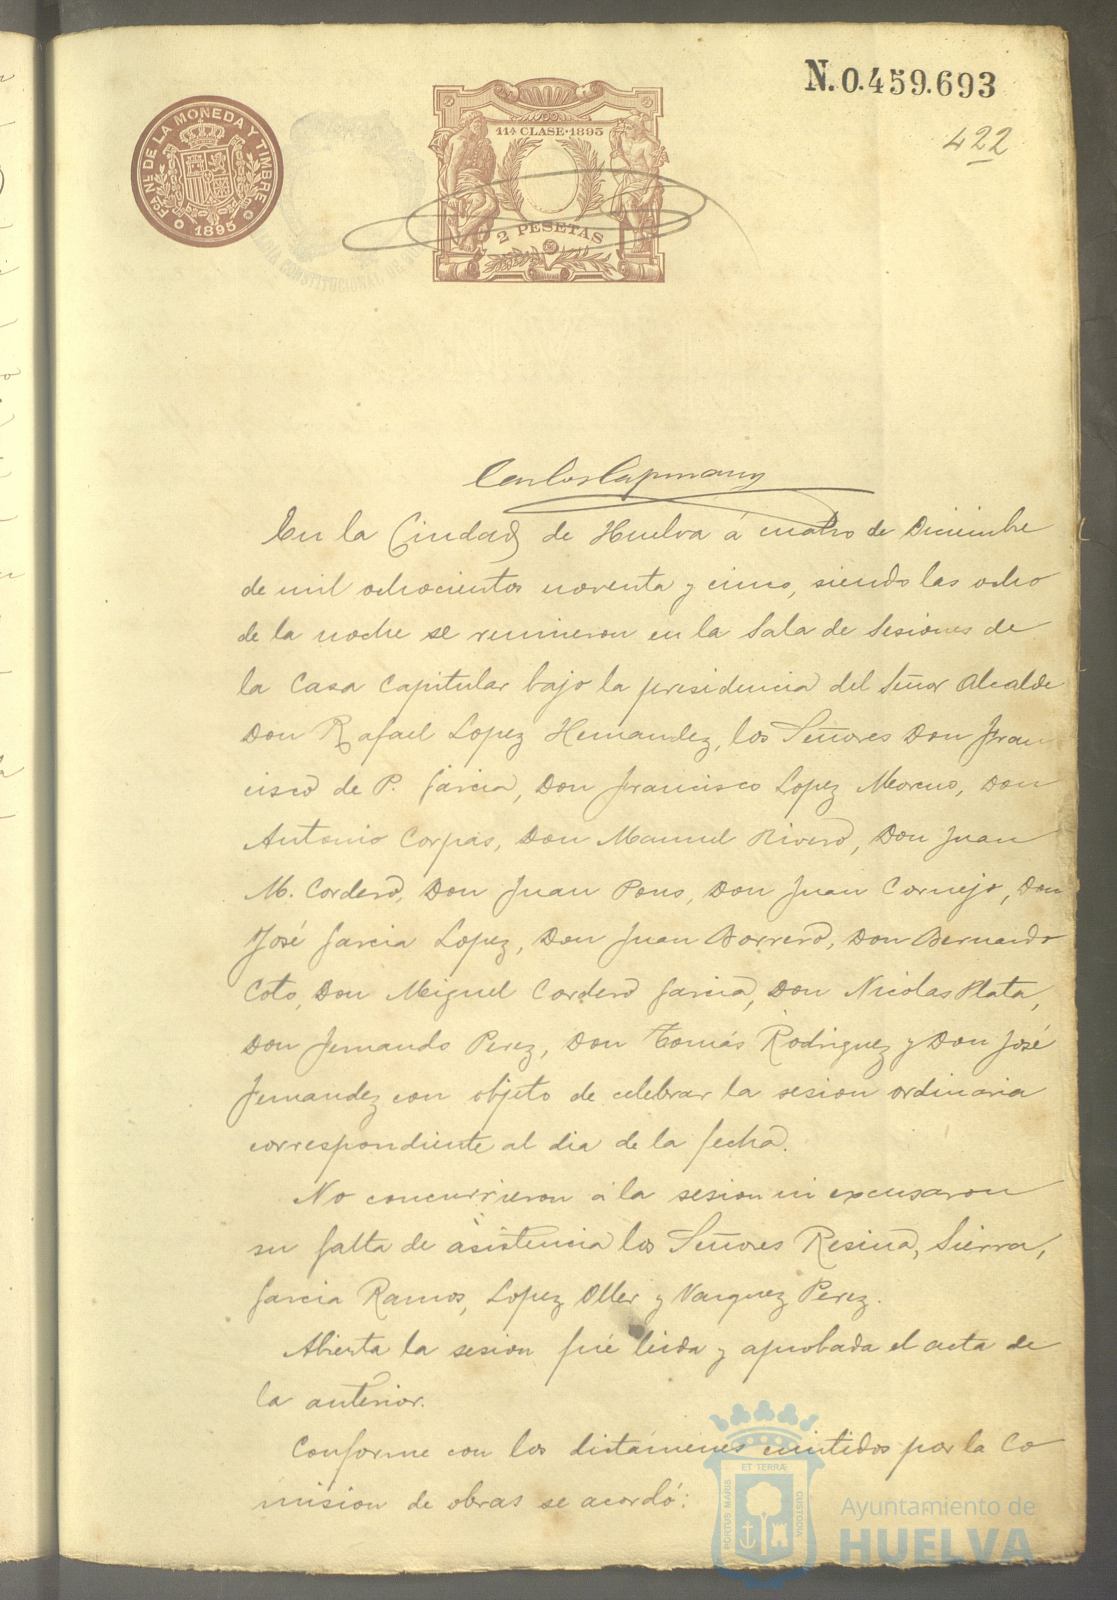 N. 0.459.693
422
FCA. NL. DE LA MONEDA Y TIMBRE
1895
11ª CLASE·1895
2 PESETAS
CONSTITUCIONAL DE
Carlos Capmany
En la Ciudad de Huelva á cuatro de Diciembre
de mil ochocientos noventa y cinco, siendo las ocho
de la noche se reunieron en la Sala de Sesiones de
la Casa Capitular bajo la presidencia del Señor Alcalde
Don Rafael Lopez Hernandez, los Señores Don Fran
cisco de P. Garcia, Don Francisco Lopez Moreno, Don
Antonio Corpas, Don Manuel Rivero, Don Juan
M. Cordero, Don Juan Pons, Don Juan Cornejo, Don
José Garcia Lopez, Don Juan Borrero, Don Bernardo
Coto, Don Miguel Cordero Garcia, Don Nicolas Plata,
Don Fernando Perez, Don Tomás Rodriguez y Don José
Fernandez con objeto de celebrar la sesion ordinaria
correspondiente al dia de la fecha.
No concurrieron á la sesion ni excusaron
su falta de asistencia los Señores Resina, Sierra,
Garcia Ramos, Lopez Oller y Vazquez Perez.
Abierta la sesion fué leida y aprobada el acta de
la anterior.
Conforme con los dictámenes emitidos por la Co
mision de obras se acordó:
PORTUS MARIS ET TERRÆ CUSTODIA
Ayuntamiento de
HUELVA